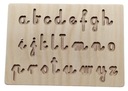 a b c d e f g h
i j k l m n o
p q r s t u v w x y z